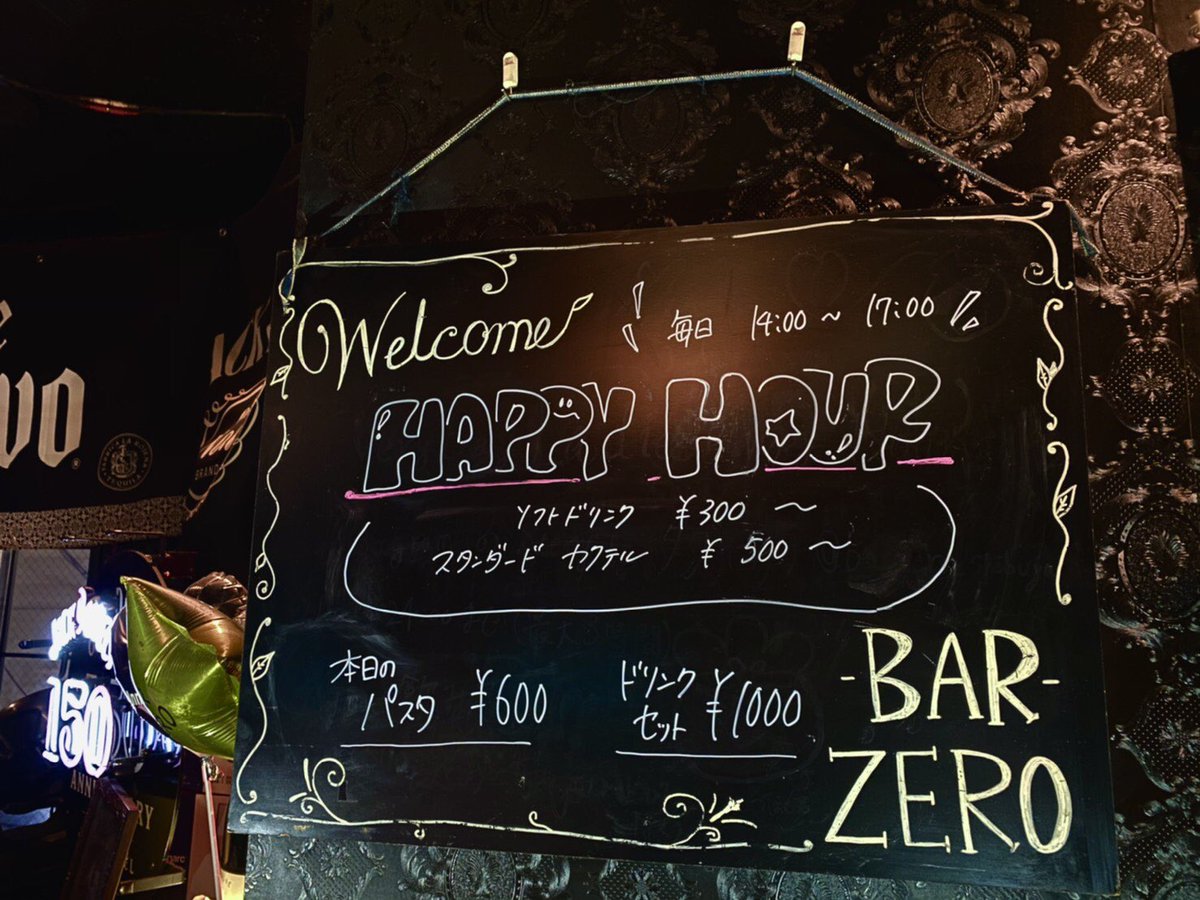 Welcome
毎日 14:00 ～ 17:00
HAPPY HOUR
ソフトドリンク ¥300 ～
スタンダード カクテル ¥500 ～
本日の
パスタ ¥600
ドリンク
セット ¥1000
-BAR-
ZERO
150
TEQUILA
BRAND